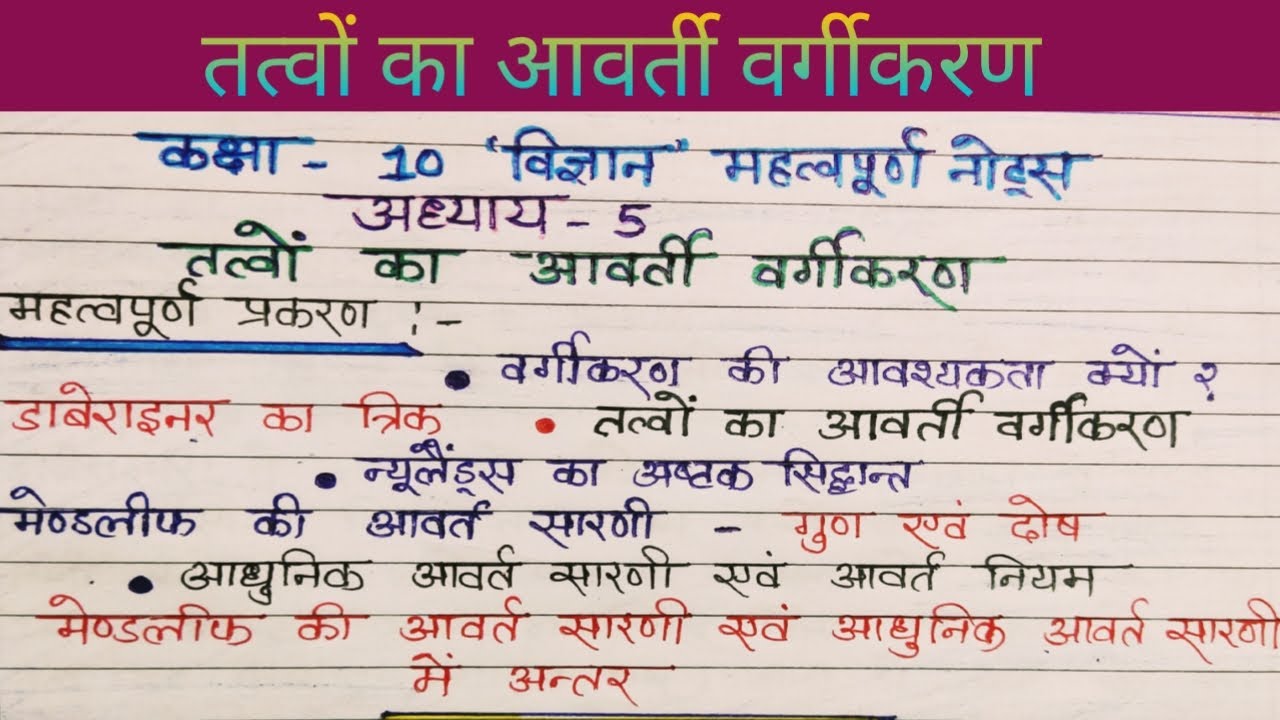 तत्वों का आवर्ती वर्गीकरण
कक्षा - 10 "विज्ञान" महत्वपूर्ण नोट्स
अध्याय - 5
तत्वों का आवर्ती वर्गीकरण
महत्वपूर्ण प्रकरण :-
• वर्गीकरण की आवश्यकता क्यों ?
डाबेराइनर का त्रिक • तत्वों का आवर्ती वर्गीकरण
• न्यूलैंड्स का अष्टक सिद्धान्त
मेण्डलीफ की आवर्त सारणी - गुण एवं दोष
• आधुनिक आवर्त सारणी एवं आवर्त नियम
मेण्डलीफ की आवर्त सारणी एवं आधुनिक आवर्त सारणी
में अन्तर